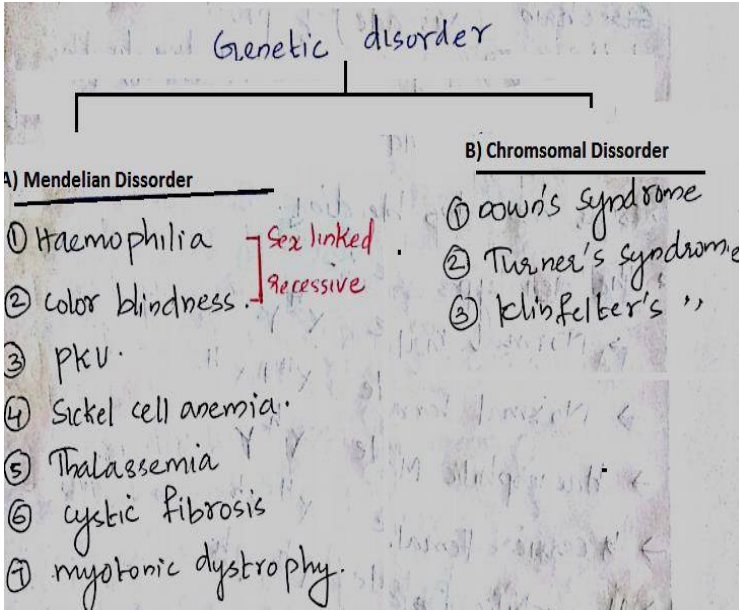 Genetic disorder
A) Mendelian Dissorder
① Haemophilia
② color blindness.
Sex linked
Recessive
③ PKU.
④ Sickel cell anemia.
⑤ Thalassemia
⑥ cystic fibrosis
⑦ myotonic dystrophy.
B) Chromsomal Dissorder
① Down's syndrome
② Turner's syndrome
③ klinfelter's ,,